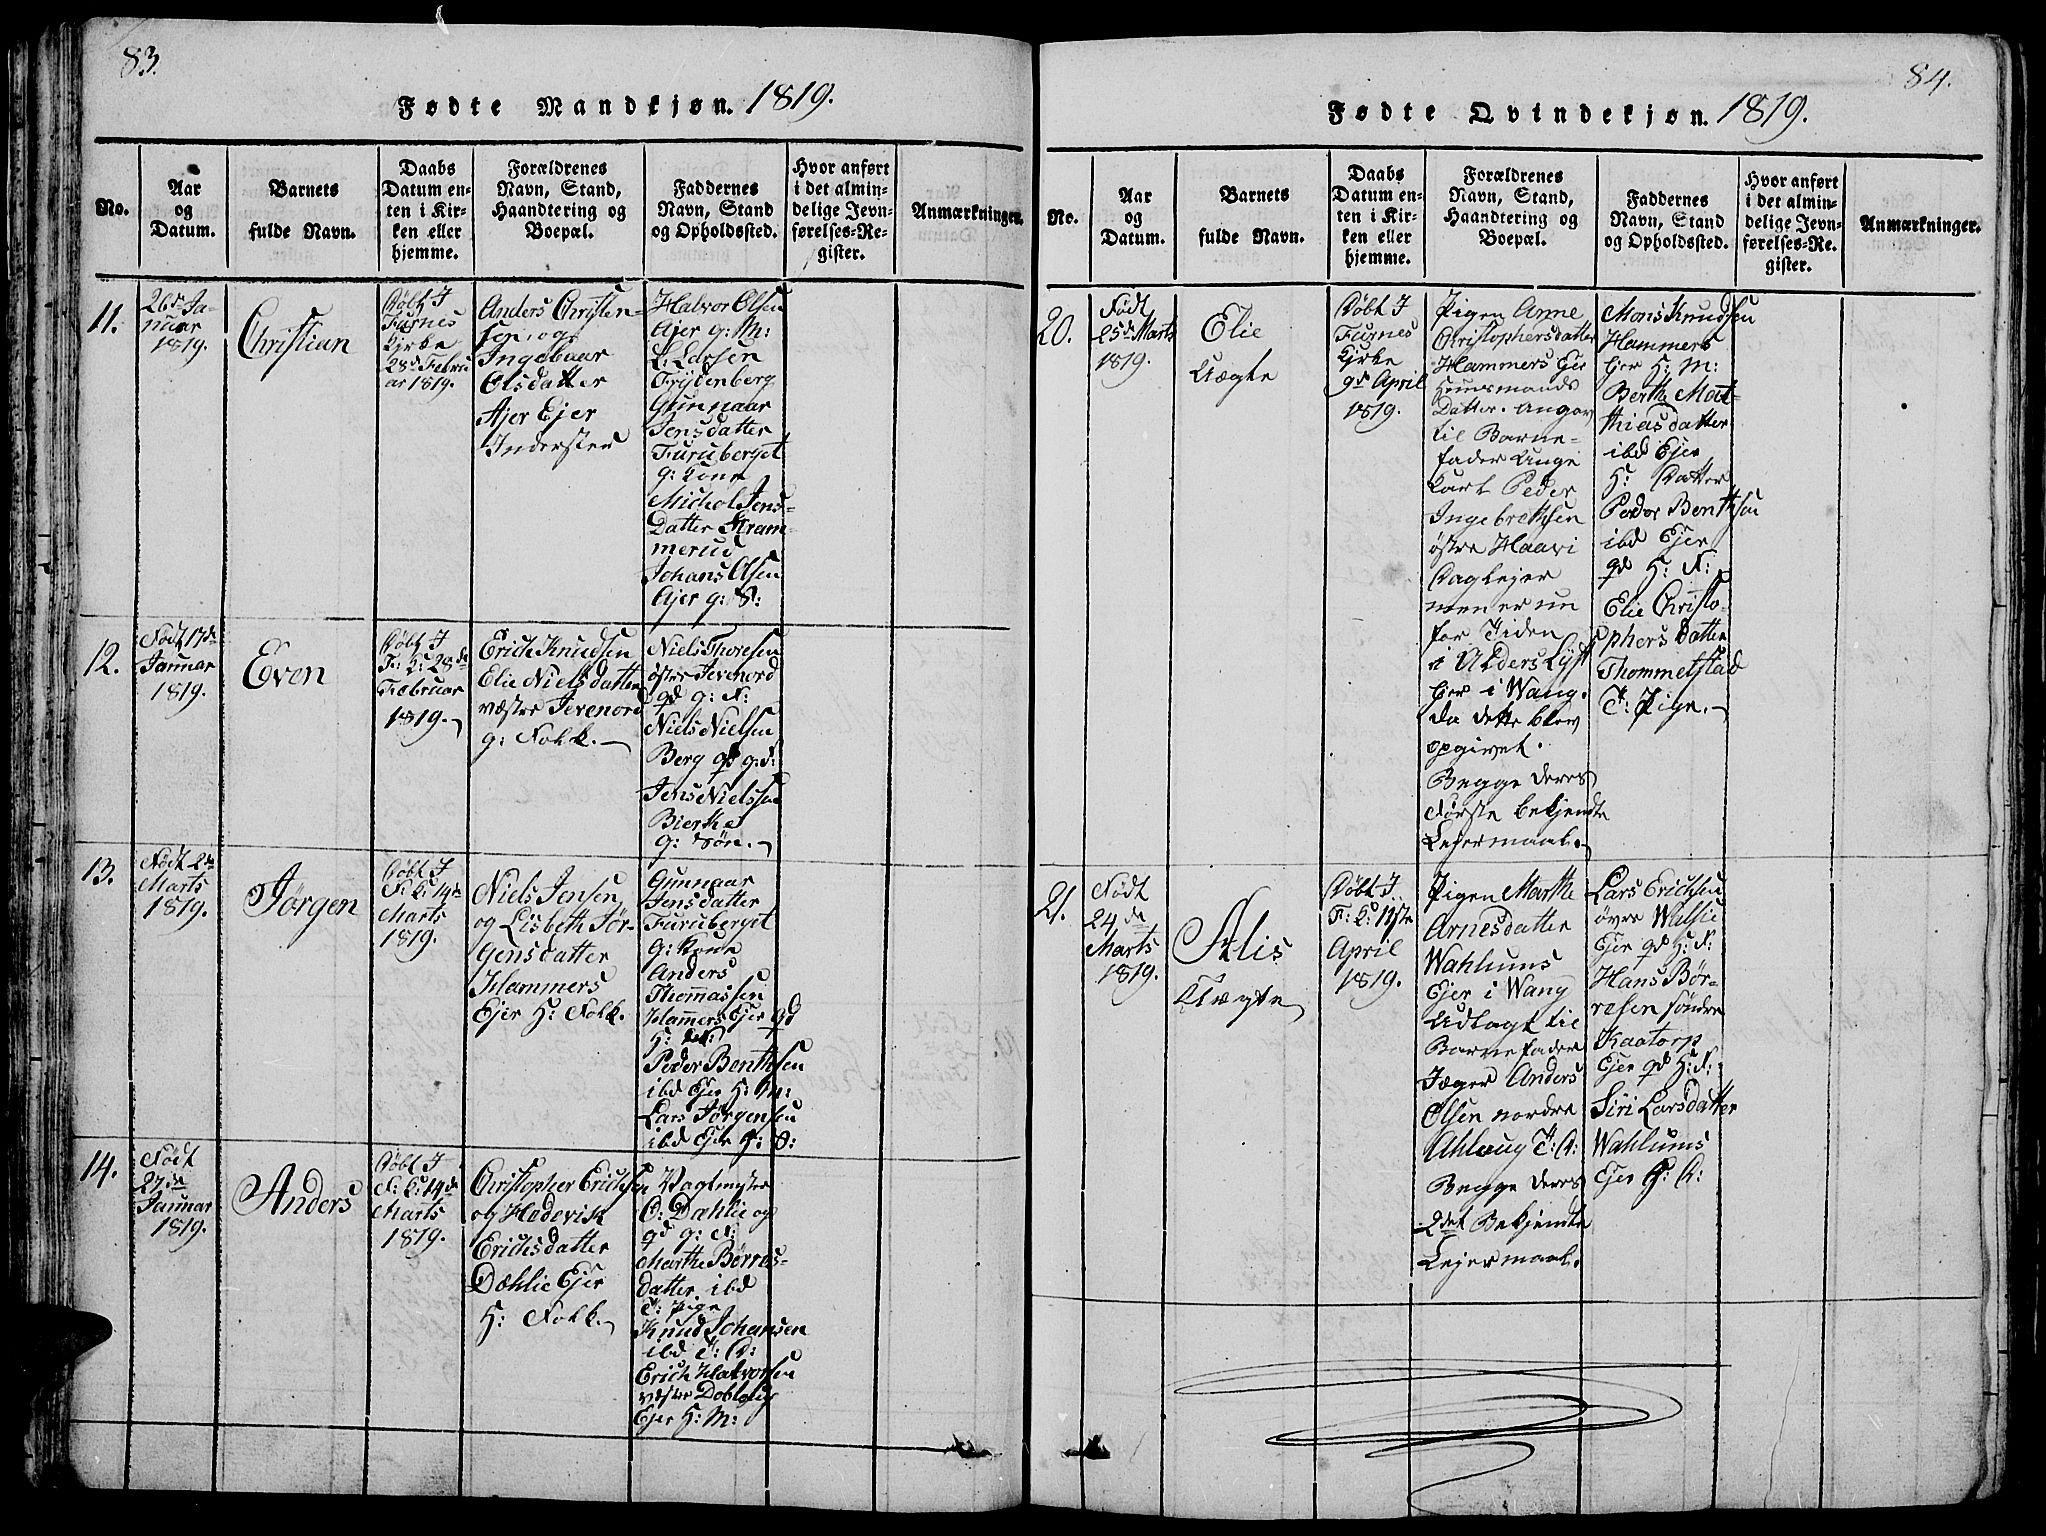 83.
Fødte Mandkjøn. 1819.
No.
Aar
og
Datum.
Barnets
fulde Navn.
Daabs
Datum en-
ten i Kir-
ken eller
hjemme.
Forældrenes
Navn, Stand,
Haandtering og
Boepæl.
Faddernes
Navn, Stand
og Opholdssted.
Hvor anført
i det almin-
delige Jevn-
førelses-Re-
gister.
Anmærkninger.
11.
26de Ja-
nuar
1819.
Christian
Døbt I
Furnes
Kirke
28de Febru
ar 1819.
Anders Christen-
sen, og
Ingebaar
Olsdatter
Ajer Ejer
Inderster
Halvor Olsen
Ajer g: M:
L: Larsen
Frydenberg
Gunnaar
Jensdatter
Furuberget
g: Kone
Michol Jens-
Datter
merud
Johans Olsen
Ajer g: S:
12.
Født 17de
Januar
1819.
Even
Døbt I
F: K: 28de
Februar
1819.
Erich Knudsen
Elie Nielsdatter
væstre Jevenord
g: Folk.
Niels Thoresen
østre Jevenord
gd g: N:
Niels Nielsen
Berg gd g. d:
Jens Nielssen
Bierke
g: Søn.
13.
Født 2de
Marts
1819.
Jørgen
Døbt I
F: K: 14de
Marts
1819.
Niels Jensen
og Lisbeth Jør-
gensdatter
Hammers
Ejer H: Folk.
Gunnaar
Jensdatter
Furuberget
g: Kone
Anders
Thomassen
Hammers Ejer gd
H:
Peder Benthsen
ibd Ejer H: M:
Lars Jørgensen
ibd Ejer H: S:
14.
Født
27de
Januar
1819.
Anders
Døbt I
F: K: 14de
Marts
1819.
Christopher Erichsen
og Hedevik
Erichsdatter
Dæhlie Ejer
H: Folk.
Vagtmester
O: Dæhlie og
gd g: N:
Marthe Børres-
datter ibd
T: Pige
Knud Johansen
ibd T: D:
Erich Halvorsen
væstre Doblaug
Ejer H: M:
84.
Fødte Qvindekjøn. 1819.
No.
Aar
og
Datum.
Barnets
fulde Navn.
Daabs
Datum en-
ten i Kir-
ken eller
hjemme.
Forældrenes
Navn, Stand,
Haandtering og
Boepæl.
Faddernes
Navn, Stand
og Opholdssted.
Hvor anført
i det almin-
delige Jevn-
førelses-Re-
gister.
Anmærkninger.
20.
Født
25de Marts
1819.
Elie
Uægte
Døbt I
Furnes
Kirke
9de April
1819.
Pigen Anne
Christophersdatter
Hammers Ejer
Huusmands
Datter. Angav
til Barne-
fader Unge
Karl Peder
Ingebrethsen
østre Haavi
Dagleier
men er nu
for Tiden
i AldersLyst
her i Wang.
da dette blev
opgivet.
Begge deres
Første bekjendte
Lejermaal.
Mons Knudsen
Hammers
Ejer H: M:
Berthe Mat-
thiasdatter
ibd Ejer
H: Datter
Peder Benthsen
ibd Ejer
gd H: N:
Elie Christo-
phersdatter
Thommelstad
T: Pige.
21.
Født
24de
Marts
1819.
Alis
Uægte
Døbt I
F: K: 19ste
April
1819.
Pigen Marthe
Arnesdatter
Wahlums
Ejer i Wang
Udlagt til
Barnefader
Jæger Anders
Olsen nordre
Ahlaug T: D:
Begge deres
2det Bekjendte
Lejermaal.
Lars Erichsen
øvre Walsie
Ejer gd H: N:
Hans Bør-
resen søndre
Kaatorp
Ejer gd H: N:
Siri Larsdatter
Wahlums
Ejer H: D: